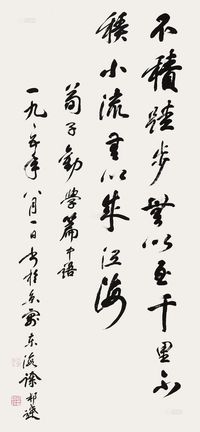 不積跬步無以至千里不
積小流無以成江海
荀子勸學篇中語
一九八五年八月一日書於京寓東海徐邦達